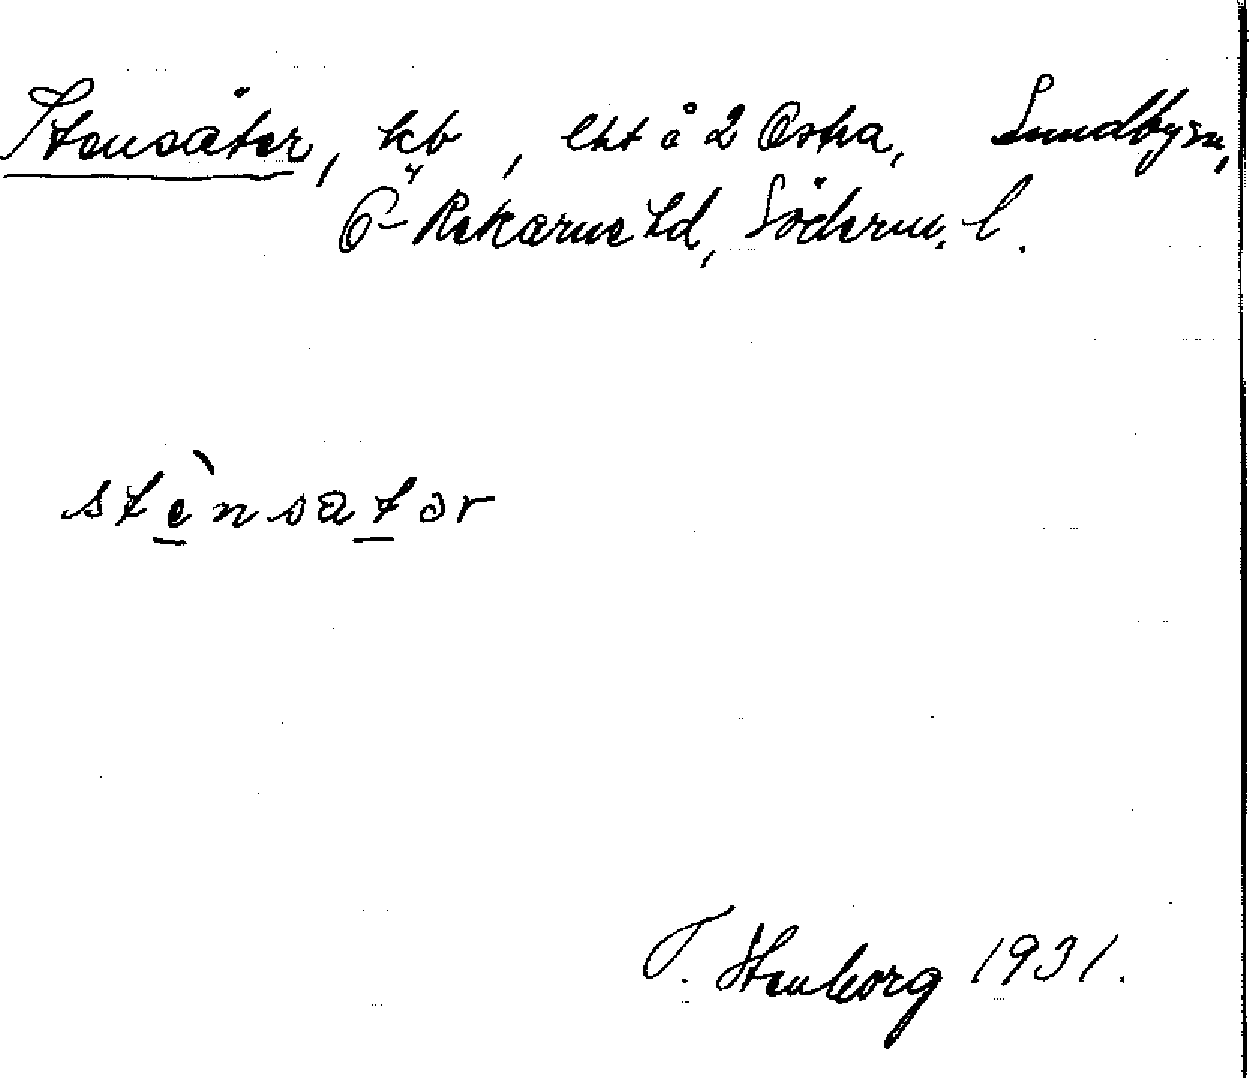 Stensäter, kb, lht å 2 Östra, Lundby sn,
Ö-Rekarne hd, Söderm. l.
stènsätər
T. Stenborg 1931.